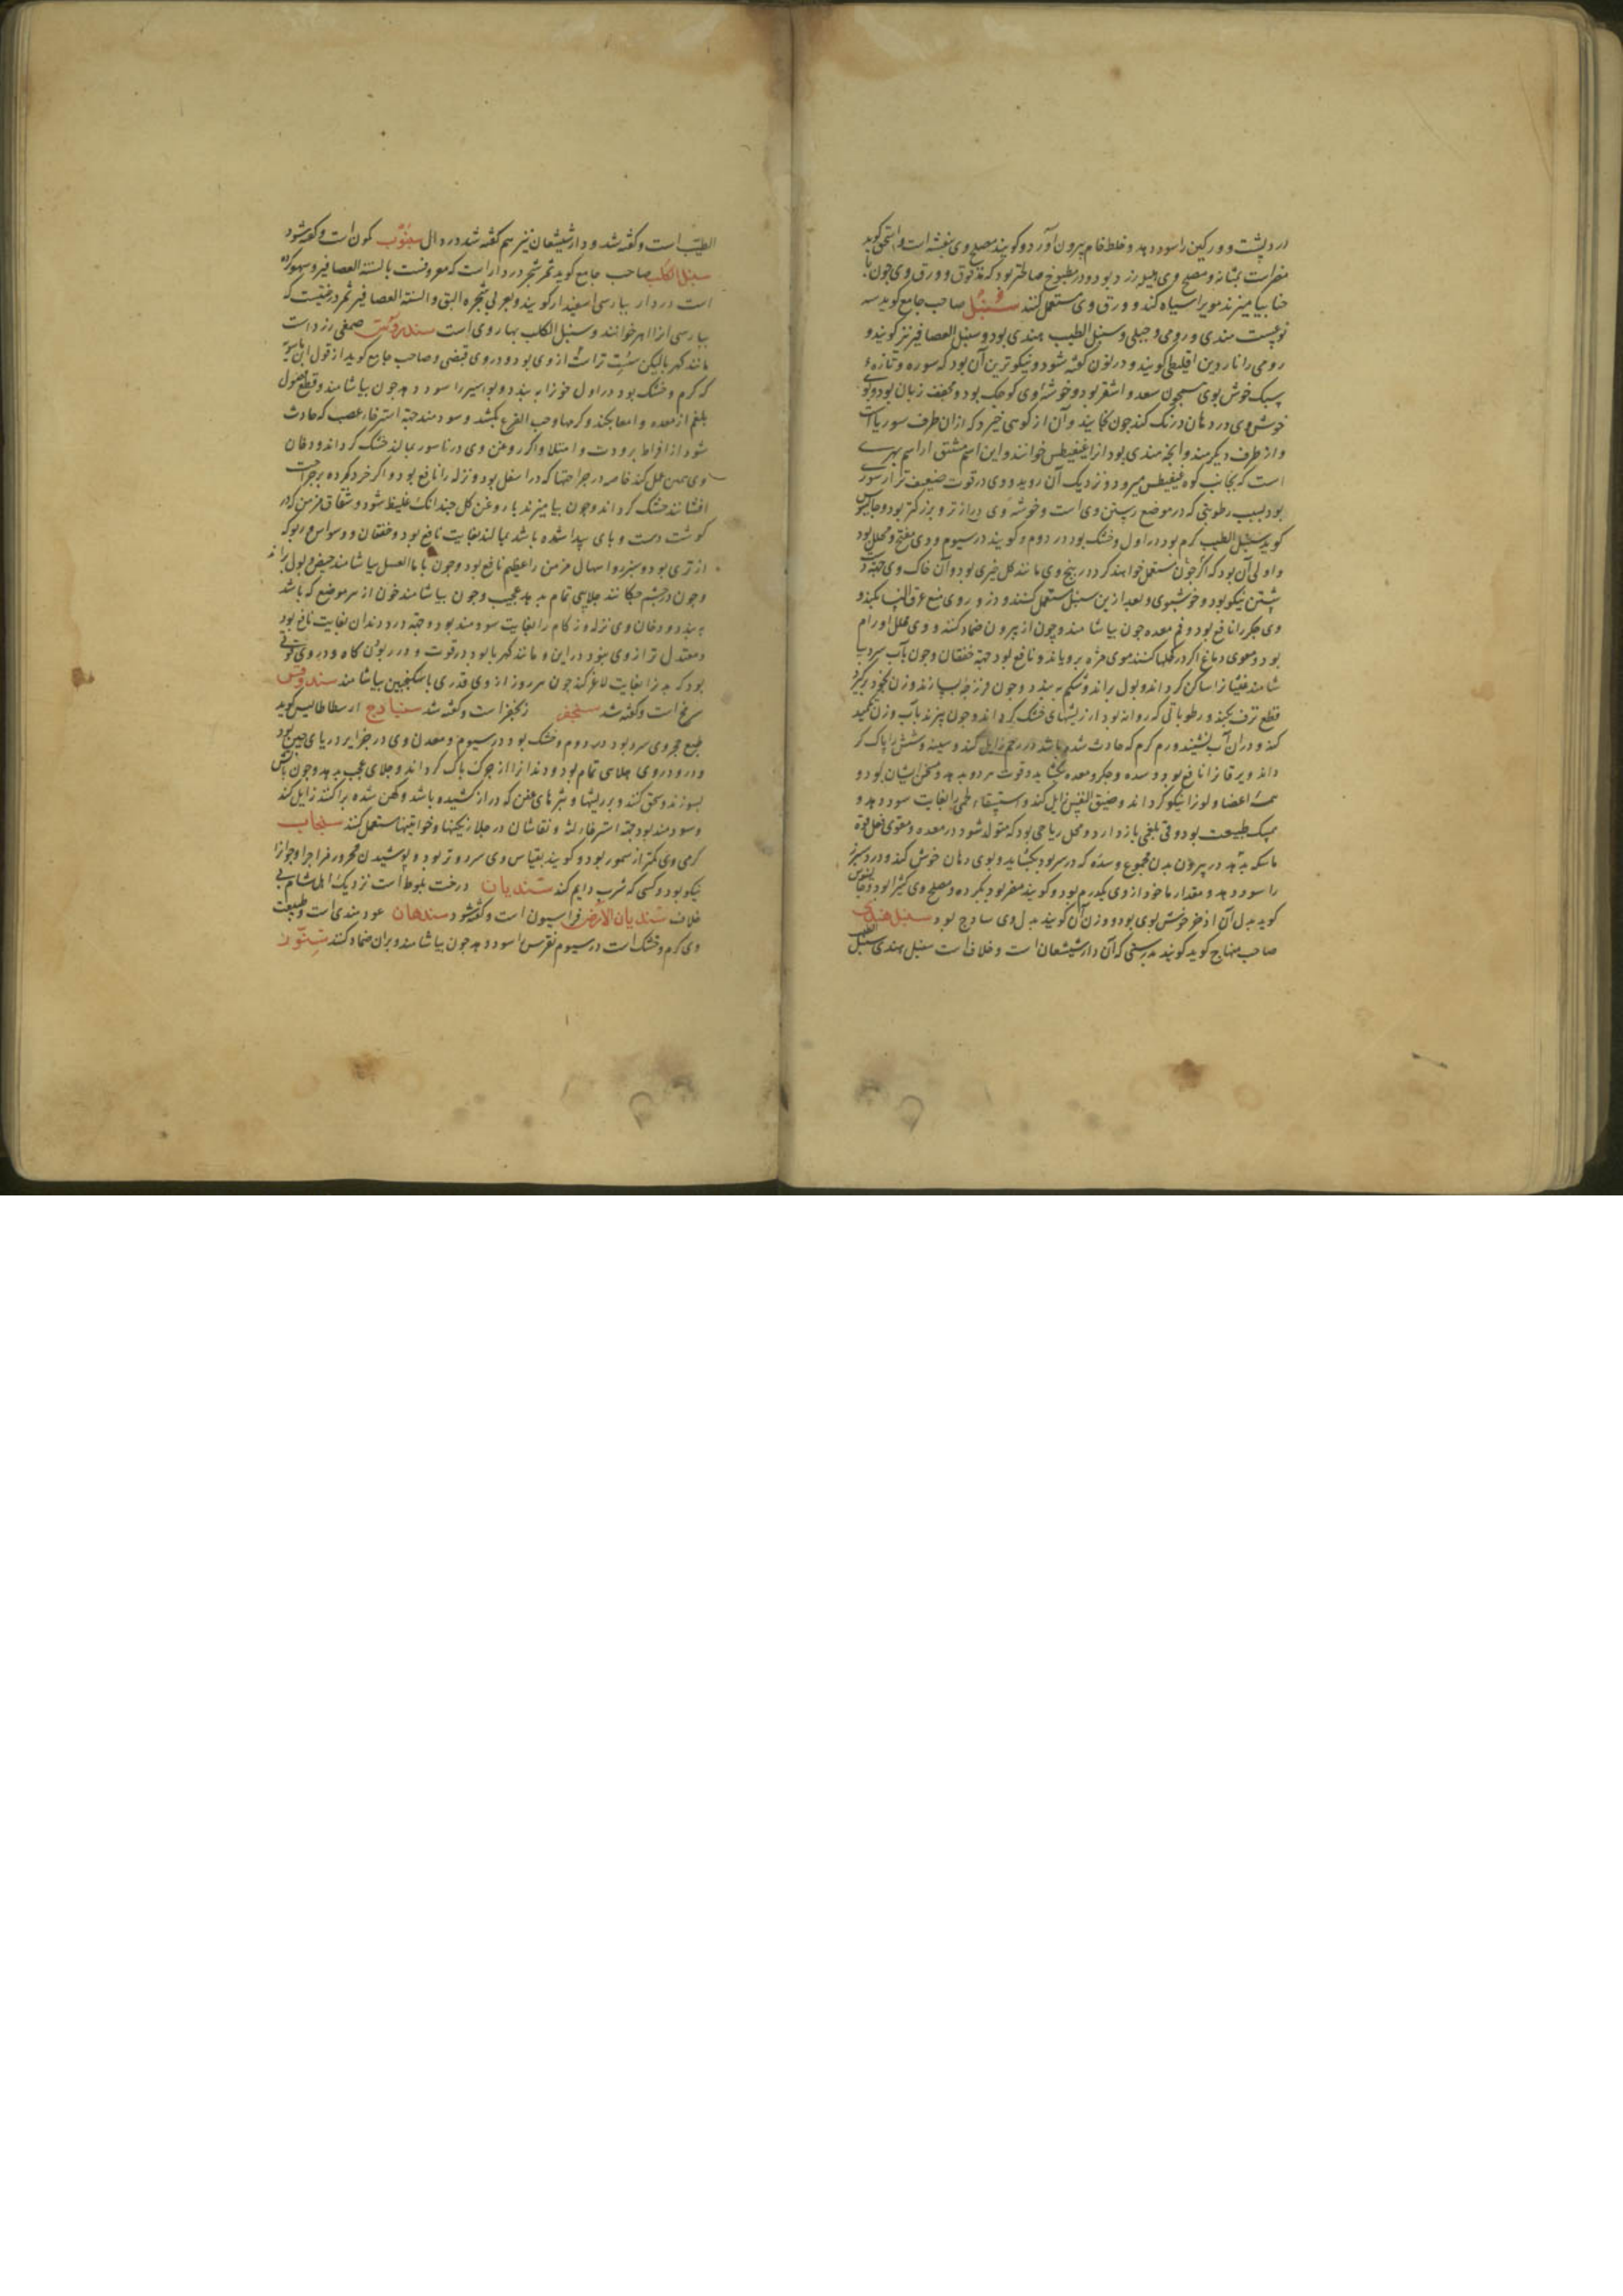 درد پشت و وركين را سود دهد و خلط خام بيرون آورد و كويند مصلح وى بنفشه است و اسحق كويد
مضر است بمثانه و مصلح وى هليله زرد بود و در مطبوخ صالحتر بود كه مدقوق و ورق وى چون با
حنا بياميزند موى را سياه كند و ورق وى مستعمل كنند سنبل صاحب جامع كويد سه
نوعست هندى و رومى و جبلى و سنبل الطيب هندى بود و سنبل العصافير نيز كويند و
رومى را ناردين اقليطى كويند و در نون كفته شود و نيكوترين آن بود كه سوره و تازه
سبك خوش بوى همچون سعد و اشقر بود و خوشه وى كوچك بود و مجفف زبان بود و بوى
خوش وى در دهان درنك كند چون بخايند و آن از كوهى خيزد كه از ان طرف سورياست
و از طرف ديكر هند و آنچه هندى بود آنرا غنغيطس خوانند و اين اسم مشتق از اسم نهرى
است كه بجانب كوه غنغيطس ميرود و نزديك آن رويد و وى در قوت ضعيف تر از سورى
بود بسبب رطوبتى كه در موضع رستن وى است و خوشه وى درازتر و بزركتر بود و جالينوس
كويد سنبل الطيب كرم بود در اول و خشك بود در دوم و كويند در سيوم و وى مفتح و محلل بود
و اولى آن بود كه اكر چون مستعمل خواهند كرد در بيخ وى مانند كل خيرى بود و آن خاك وى جهت دست
شستن نيكو بود و خوشبوى و بعد ازين سنبل مستعمل كنند و در وى منع عرق
وى جكر را نافع بود و فم معده چون بياشامند و چون از بيرون ضماد كنند و وى محلل اورام
بود و مقوى دماغ اكر در كحلها كنند موى مژه بروياند و نافع بود جهة خفقان و چون بآب سرد بيا
شامند غثيان را ساكن كرداند و بول براند و شكم ببندد و چون فرزجه سازند و زن بخود بركيرد
قطع نزف بكند و رطوباتى كه روانه بود از ريشهاى خشك كرداند و چون بپزند بآب و زن تكميد
كند و در ان آب نشيند ورم كرم كه حادث شده باشد در رحم زايل كند و سينه و شش را پاك كر
داند و يرقان را نافع بود و سده و جكر و معده بكشايد و قوت هر دو بدهد و مسخن ايشان بود و
همه اعضا و لون را نيكو كرداند و ضيق النفس زايل كند و استسقاء لحمى را بغايت سود دهد و
ممسك طبيعت بود و قى بلغمى باز دارد و محلل رياحى بود كه متولد شود در معده و مقوى فعل قوة
ماسكه بدهد در بيرون بدن مجموع و سده كه در سر بود بكشايد و بوى دهان خوش كند و درد سپرز
را سود دهد و مقدار ماخوذ از وى يكدرم بود و كويند مضر بود بكرده و مصلح وى كثيرا بود و جالينوس
كويد بدل آن اذخر خوش بوى بود و وزن آن كويند بدل وى ساذج بود سنبل هندى
صاحب منهاج كويد كويند بدرستى كه آن دارشيشعان است و خلافست سنبل هندى سنبل
الطيب است و كفته شد و دارشيشعان نيز هم كفته شد در دال سنوت كمون است و كفته شود
سنبل الكلب صاحب جامع كويد ثمر شجر دردار است كه معروفست بالسنة العصافير و سهو كرده
است دردار بپارسى اسفيدار كويند و بعربى شجرة البق و السنة العصافير ثمر درختيست كه
بپارسى آنرا اهر خوانند و سنبل الكلب بهار وى است سندروس صمغى زرد است
مانند كهربا ليكن سست تر است از وى بود و در وى قبضى و صاحب جامع كويد از قول ابن ماسويه
كه كرم و خشك بود در اول خون را ببندد و بواسير را سود دهد چون بياشامند و قطع فضول
بلغم از معده و امعا بكند و كرمها و حب القرع بكشد و سودمند جهة استرخاء عصب كه حادث
شود از افراط برودت و امتلا و اكر روغن وى در ناسور بمالند خشك كرداند و دخان
وى همين عمل كند خاصه در جراحتها كه در اسفل بود و نزله را نافع بود و اكر خرد كرده بر جراحت
افشانند خشك كرداند و چون بياميزند با روغن كل چندانك غليظ شود و شقاق مزمن كه در
كوشت دست و پاى پيدا شده باشد بمالند بغايت نافع بود و خفقان و وسواس و ربو كه
از ترى بود و سپرز و اسهال مزمن را عظيم نافع بود و چون با ماء العسل بياشامند حيض و بول براند
و چون در چشم چكانند جلايى تمام بدهد عجيب و چون بياشامند خون از هر موضع كه باشد
ببندد و دخان وى نزله و زكام را بغايت سودمند بود و جهة درد دندان بغايت نافع بود
و معتدل تر از وى نبود در اين و مانند كهربا بود در قوت و در ربودن كاه و در وى قوتى
بود كه بدن را بغايت لاغر كند چون هر روز از وى قدرى با سكنجبين بياشامند سندوقس
سرنج است و كفته شد سنجفر زنجفر است و كفته شد سنبادج ارسطاطاليس كويد
طبع حجر وى سرد بود در دوم و خشك بود در سيوم و معدن وى در جزاير درياى چين بود
و در وى جلايى تمام بود و دندان را از چرك پاك كرداند و جلاى عجب بدهد و چون بآتش
بسوزند و سحق كنند و بر ريشها و بثرهاى عفن كه دراز كشيده باشد و كهن شده پراكنند زايل كند
و سودمند بود جهة استرخاء لثه و نقاشان در جلاء نكينها و خواتيمها مستعمل كنند سنجاب
كرمى وى كمتر از سمور بود و كويند بقياس وى سرد و تر بود و پوشيدن محرور مزاج را و جوان را
نيكو بود و كسى كه شرب دايم كند سنديان درخت بلوط است نزديك اهل شام بى
خلاف سنديان الارض فراسيون است و كفته شود سندهان عود هندى است و طبيعت
وى كرم و خشك است در سيوم نقرس را سود دهد چون بياشامند و بران ضماد كنند سنور